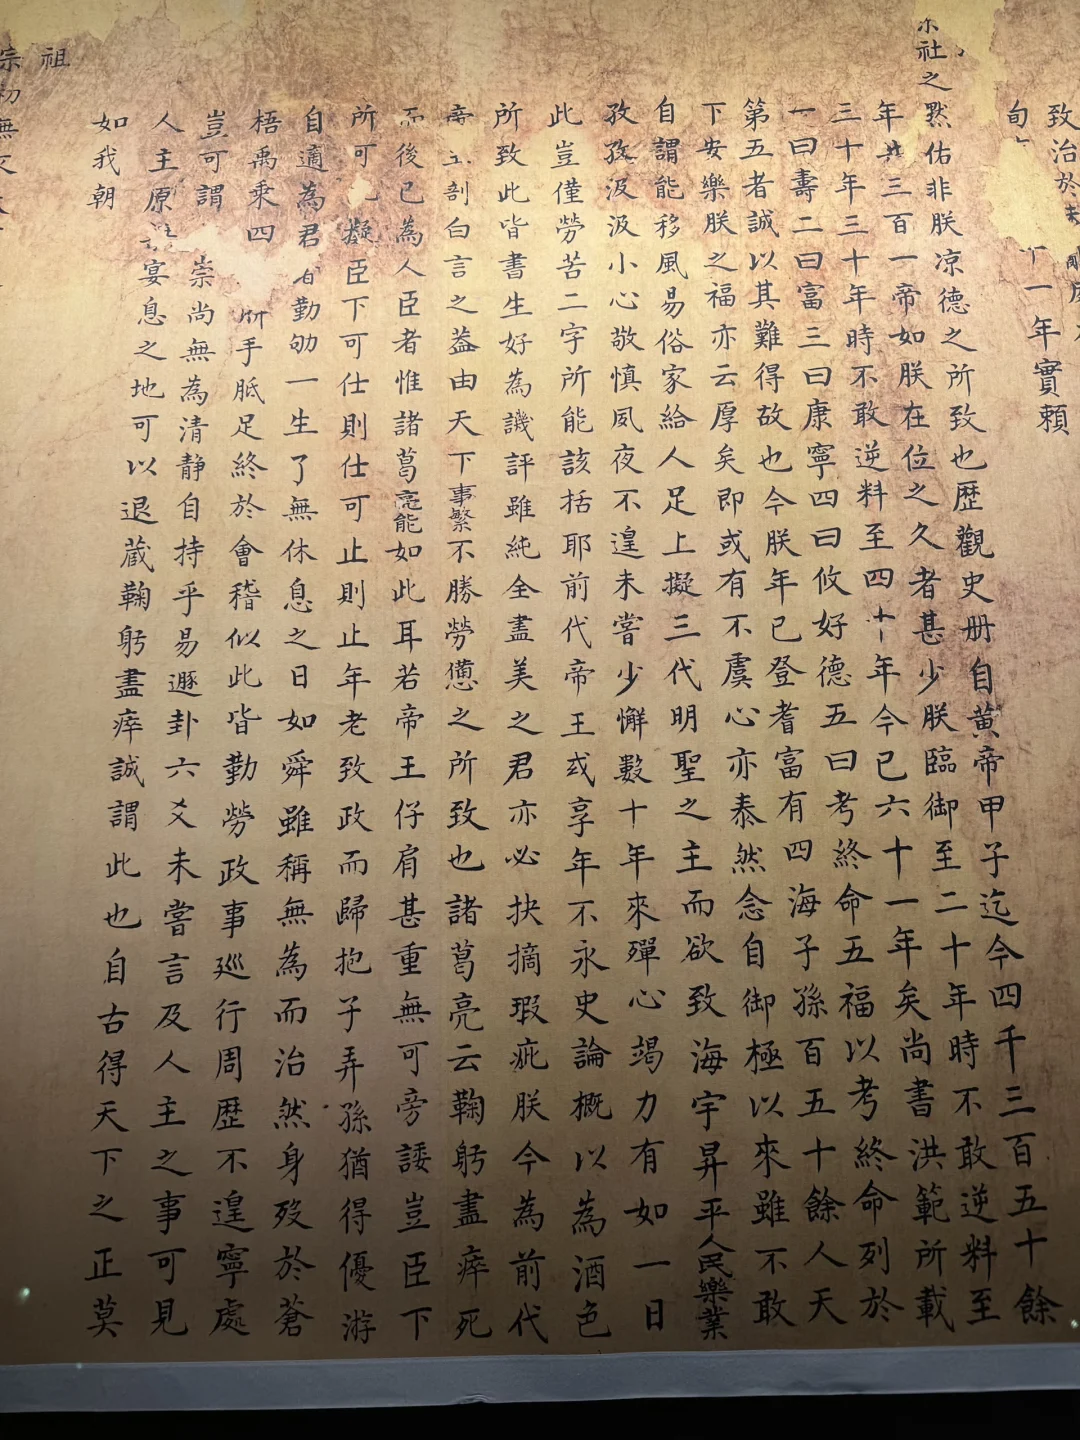 致治於未
旬 一年實賴
宗社之
默佑非朕凉德之所致也歷觀史册自黃帝甲子迄今四千三百五十餘
年共三百一帝如朕在位之久者甚少朕臨御至二十年時不敢逆料至
三十年三十年時不敢逆料至四十年今已六十一年矣尚書洪範所載
一曰壽二曰富三曰康寧四曰攸好德五曰考終命五福以考終命列於
第五者誠以其難得故也今朕年已登耆富有四海子孫百五十餘人天
下安樂朕之福亦云厚矣即或有不虞心亦泰然念自御極以來雖不敢
自謂能移風易俗家給人足上擬三代明聖之主而欲致海宇昇平人民樂業
孜孜汲汲小心敬慎夙夜不遑未嘗少懈數十年來殫心竭力有如一日
此豈僅勞苦二字所能該括耶前代帝王或享年不永史論概以為酒色
所致此皆書生好為譏評雖純全盡美之君亦必抉摘瑕疵朕今為前代
帝王剖白言之葢由天下事繁不勝勞憊之所致也諸葛亮云鞠躬盡瘁死
而後已為人臣者惟諸葛亮能如此耳若帝王仔肩甚重無可旁諉豈臣下
所可 擬臣下可仕則仕可止則止年老致政而歸抱子弄孫猶得優游
自適為君者勤劬一生了無休息之日如舜雖稱無為而治然身歿於蒼
梧禹乘四 胼手胝足終於會稽似此皆勤勞政事廵行周歷不遑寧處
豈可謂 崇尚無為清靜自持乎易遯卦六爻未嘗言及人主之事可見
人主原 宴息之地可以退藏鞠躬盡瘁誠謂此也自古得天下之正莫
如我朝
祖
宗初無